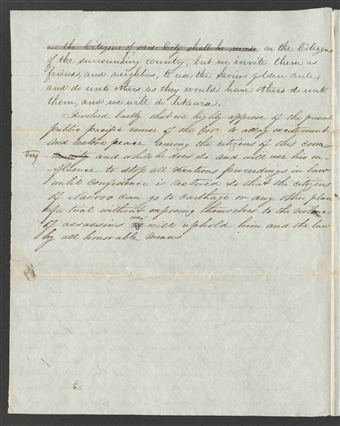 as the Citizens of said City shall be made on the Citizens
of the surrounding county, but we invite them as
friends, and neighbors, to use the Saviors golden rule,
and do unto others as they would have others do unto
them, and we will do likewise,
Resolved lastly that we highly approve of the present
public pacific course of the Gov. to allay excitement
and restore peace among the citizens of this coun
try and while he does so and will use his in-
fluence to stop all vexatious proceedings in law
until confidence is restored so that the citizens
of Nauvoo can go to Carthage or any other place
for trial without exposing themselves to the violence
of assassins we will uphold him and the law
by all honorable means